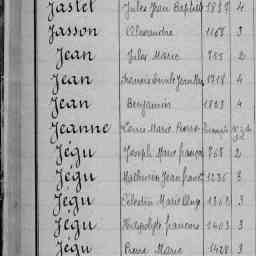 Jastel Jules Jean Baptiste 1837 4
Jasson Alexandre 1168 3
Jean Jules Marie 755 2
Jean 1718 4
Jean Benjamin 1823 4
Jeanne Louis Marie Pierre
Jégu Joseph Marie François 768 2
Jégu Mathurin Jean François 1236 3
Jégu Célestin Marie Ange 1302 3
Jégu Hippolyte François 1403 3
Jégu Pierre Marie 1428 3